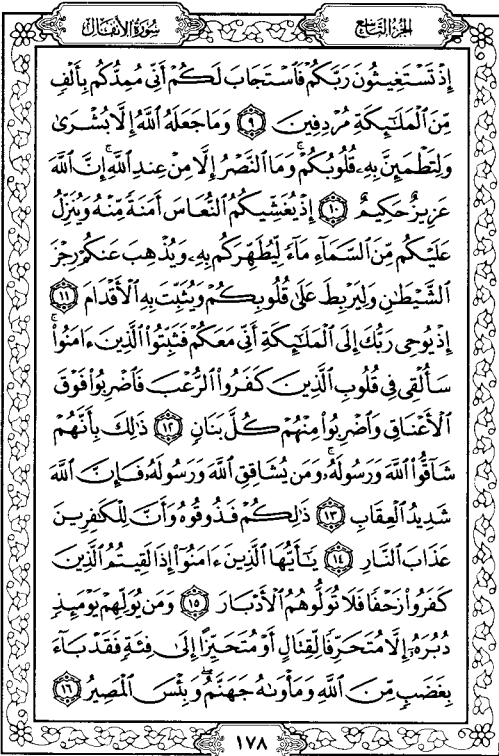 الجزء التاسع
سورة الأنفال
إِذْ تَسْتَغِيثُونَ رَبَّكُمْ فَٱسْتَجَابَ لَكُمْ أَنِّى مُمِدُّكُم بِأَلْفٍ
مِّنَ ٱلْمَلَٰٓئِكَةِ مُرْدِفِينَ ٩ وَمَا جَعَلَهُ ٱللَّهُ إِلَّا بُشْرَىٰ
وَلِتَطْمَئِنَّ بِهِۦ قُلُوبُكُمْ ۚ وَمَا ٱلنَّصْرُ إِلَّا مِنْ عِندِ ٱللَّهِ ۚ إِنَّ ٱللَّهَ
عَزِيزٌ حَكِيمٌ ١٠ إِذْ يُغَشِّيكُمُ ٱلنُّعَاسَ أَمَنَةً مِّنْهُ وَيُنَزِّلُ
عَلَيْكُم مِّنَ ٱلسَّمَآءِ مَآءً لِّيُطَهِّرَكُم بِهِۦ وَيُذْهِبَ عَنكُمْ رِجْزَ
ٱلشَّيْطَٰنِ وَلِيَرْبِطَ عَلَىٰ قُلُوبِكُمْ وَيُثَبِّتَ بِهِ ٱلْأَقْدَامَ ١١
إِذْ يُوحِى رَبُّكَ إِلَى ٱلْمَلَٰٓئِكَةِ أَنِّى مَعَكُمْ فَثَبِّتُوا۟ ٱلَّذِينَ ءَامَنُوا۟ ۚ
سَأُلْقِى فِى قُلُوبِ ٱلَّذِينَ كَفَرُوا۟ ٱلرُّعْبَ فَٱضْرِبُوا۟ فَوْقَ
ٱلْأَعْنَاقِ وَٱضْرِبُوا۟ مِنْهُمْ كُلَّ بَنَانٍ ١٢ ذَٰلِكَ بِأَنَّهُمْ
شَآقُّوا۟ ٱللَّهَ وَرَسُولَهُۥ ۚ وَمَن يُشَاقِقِ ٱللَّهَ وَرَسُولَهُۥ فَإِنَّ ٱللَّهَ
شَدِيدُ ٱلْعِقَابِ ١٣ ذَٰلِكُمْ فَذُوقُوهُ وَأَنَّ لِلْكَٰفِرِينَ
عَذَابَ ٱلنَّارِ ١٤ يَٰٓأَيُّهَا ٱلَّذِينَ ءَامَنُوٓا۟ إِذَا لَقِيتُمُ ٱلَّذِينَ
كَفَرُوا۟ زَحْفًا فَلَا تُوَلُّوهُمُ ٱلْأَدْبَارَ ١٥ وَمَن يُوَلِّهِمْ يَوْمَئِذٍ
دُبُرَهُۥٓ إِلَّا مُتَحَرِّفًا لِّقِتَالٍ أَوْ مُتَحَيِّزًا إِلَىٰ فِئَةٍ فَقَدْ بَآءَ
بِغَضَبٍ مِّنَ ٱللَّهِ وَمَأْوَىٰهُ جَهَنَّمُ ۖ وَبِئْسَ ٱلْمَصِيرُ ١٦
١٧٨